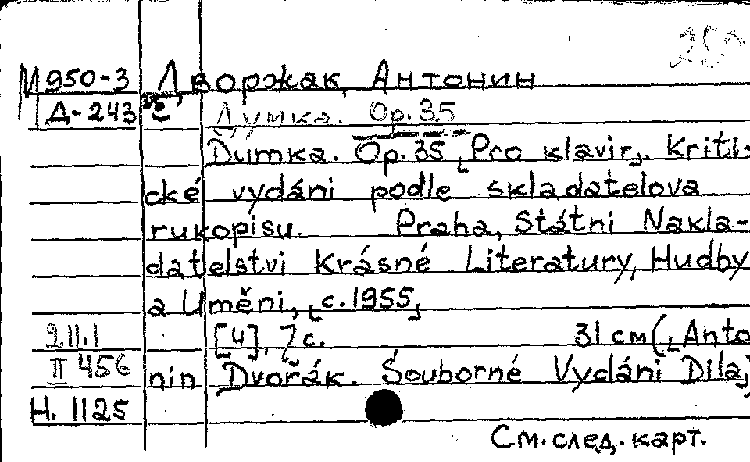 М 950-3 Дворжак, Антонин
Д-243
Думка. Op. 35
Dumka. Op. 35 [Pro klavir]. Kriti-
cké vydáni podle skladatelova
rukopisu. Praha, Státni Nakla-
datelstvi Krásné Literatury, Hudby
a Uměni, [c. 1955]
211.1 [4], 7 с. 31 см ([Anto
II 456 nin Dvořák. Souborné Vydáni Dila]
Н. 1125
См. след. карт.